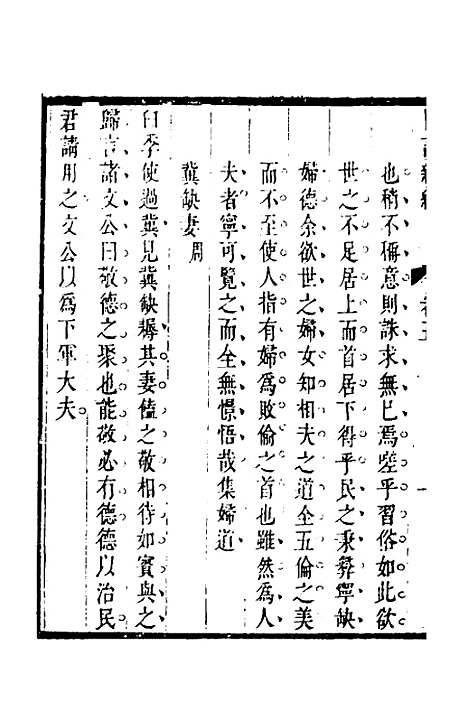 也稍不稱意則誅求無已焉嗟乎習俗如此欲
世之不足居上而首居下得乎民之秉彝寧缺
婦德余欲世之婦女知相夫之道全五倫之美
而不至使人指有婦爲敗倫之首也雖然爲人
夫者寧可覽之而全無憬悟哉集婦道
冀缺妻周
臼季使過冀見冀缺耨其妻饁之敬相待如賓與之
歸言諸文公曰敬德之聚也能敬必有德德以治民
君請用之文公以爲下軍大夫